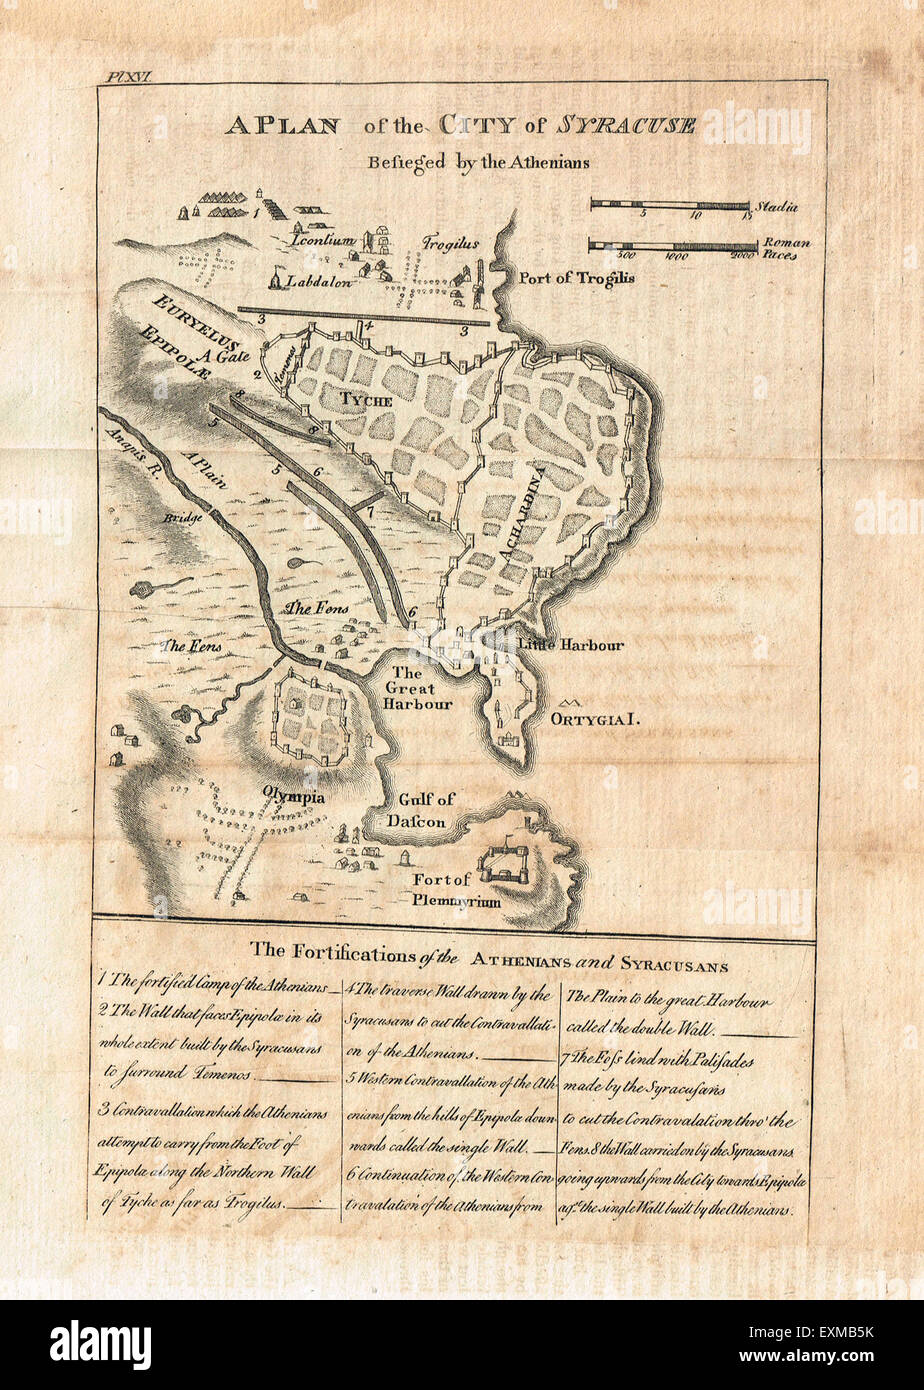 Pl XVI.
A PLAN of the CITY of SYRACUSE
Besieged by the Athenians
5 10 15 Stadia
500 1000 2000 Roman Paces
1
Icontium
Trogilus
Labdalon
Port of Trogilis
3 4 3
EURYELUS
A Gate
EPIPOLÆ
2
Temenos
TYCHE
8
5
8
Anapis R.
A Plain
5
6
7
ACHARDINA
Bridge
The Fens
6
The Fens
Little Harbour
The
Great
Harbour
ORTYGIA I.
Olympia
Gulf of
Dascon
Fort of
Plemmyrium
The Fortifications of the ATHENIANS and SYRACUSANS
1 The fortified Camp of the Athenians
2 The Wall that faces Epipolæ in its
whole extent built by the Syracusans
to surround Temenos.
3 Contravallation which the Athenians
attempt to carry from the Foot of
Epipolæ along the Northern Wall
of Tyche as far as Trogilus.
4 The traverse Wall drawn by the
Syracusans to cut the Contravallati-
on of the Athenians.
5 Western Contravallation of the Ath-
enians from the hills of Epipolæ down-
wards called the single Wall.
6 Continuation of the Western Con-
travalation of the Athenians from
The Plain to the great Harbour
called the double Wall.
7 The Foss lind with Palisades
made by the Syracusans
to cut the Contravalation thro' the
Fens. 8 the Wall carried on by the Syracusans
going upwards from the City towards Epipolæ
agst. the single Wall built by the Athenians.
alamy
alamy stock photo
EXMB5K
www.alamy.com